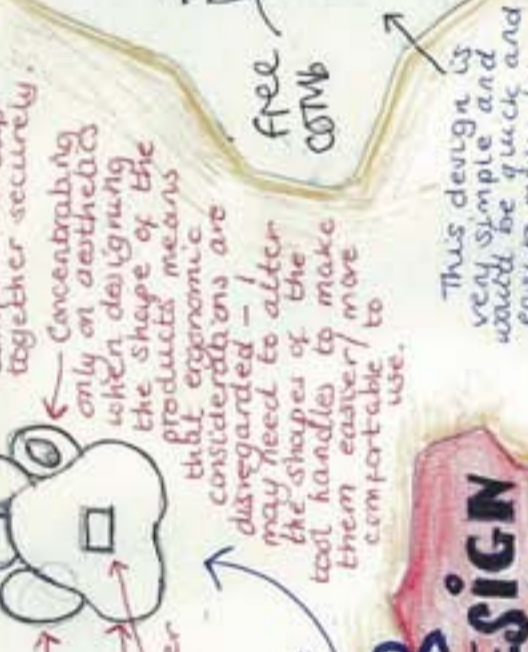 together securely.
Concentrating
only on aesthetics
when designing
the shape of the
products means
that ergonomic
considerations are
disregarded - I
may need to alter
the shapes of the
tool handles to make
them easier/more
comfortable to
use.
free
comb
This design is
very simple and
would be quick and